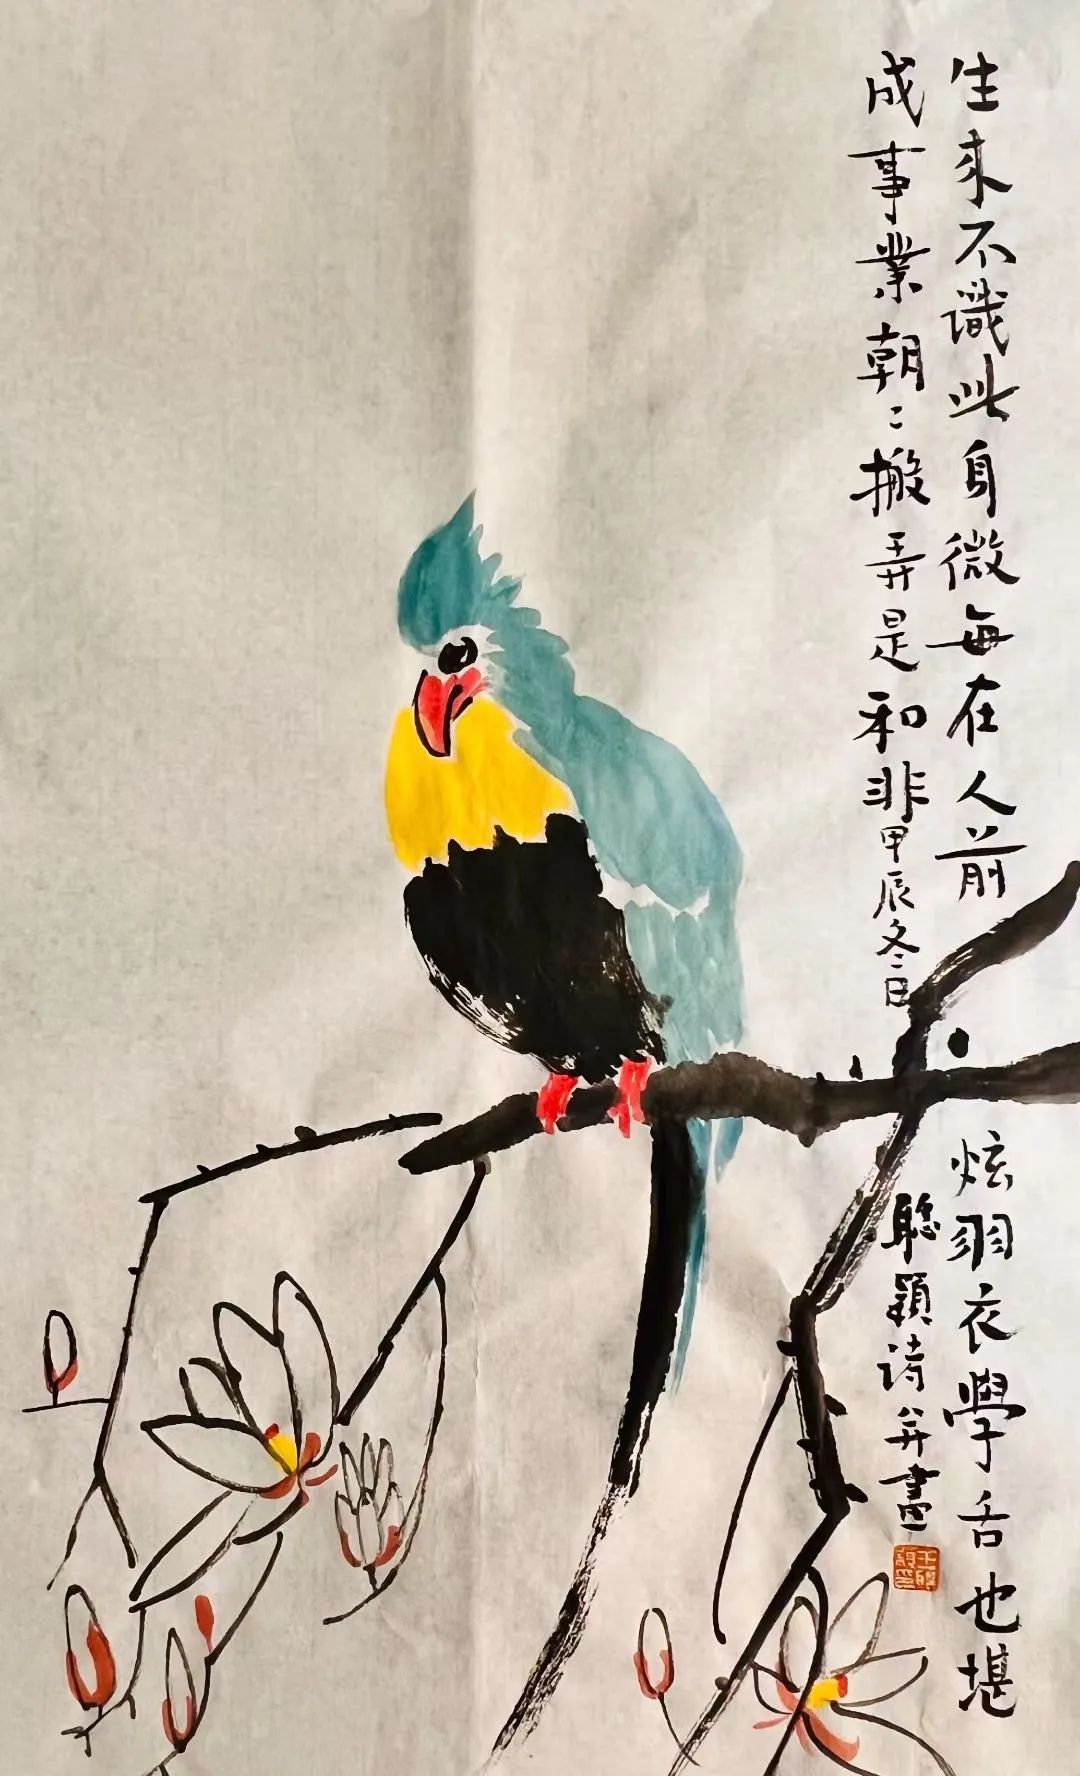 生來不識此身微每在人前
炫羽衣學舌也堪
成事業朝〻搬弄是和非甲辰冬日
聪穎诗并畫